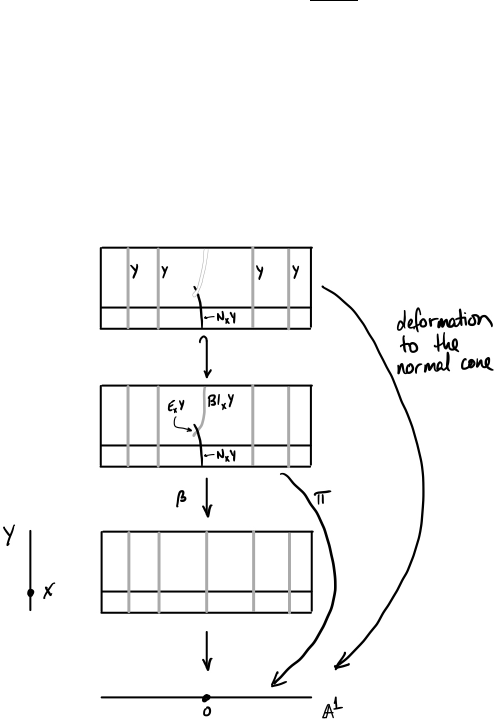 Y Y Y Y
N_X Y
deformation
to the
normal cone
E_X Y Bl_X Y
N_X Y
β π
Y
X
0 𝔸¹